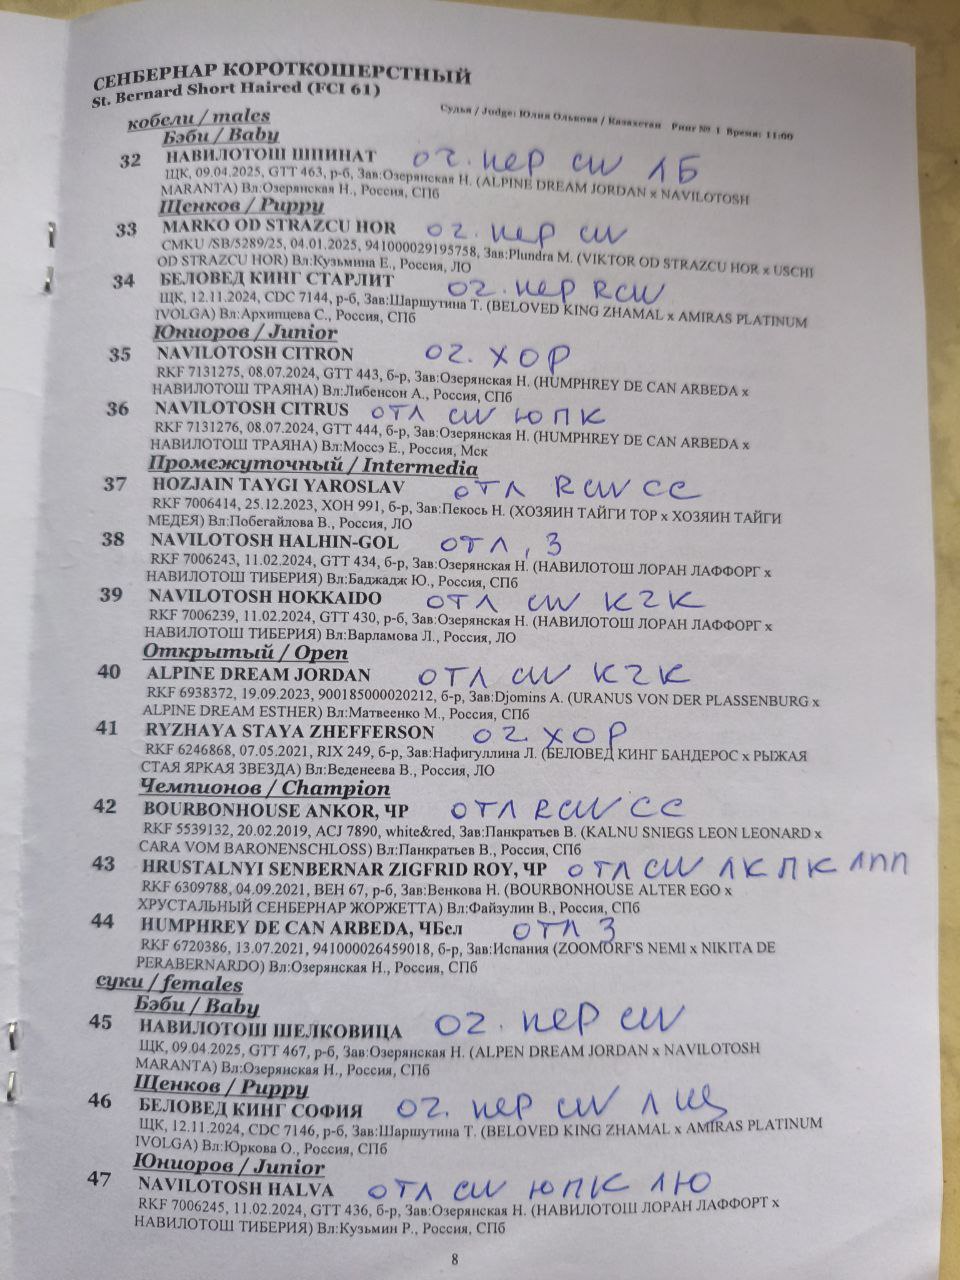 СЕНБЕРНАР КОРОТКОШЕРСТНЫЙ
St. Bernard Short Haired (FCI 61)
Судья / Judge: Юлия Олькова / Казахстан Ринг № 1 Время: 11:00
кобели / males
Бэби / Baby
32 НАВИЛОТОШ ШПИНАТ оч. пер CW ЛБ
ЩК, 09.04.2025, GTT 463, р-б, Зав:Озерянская Н. (ALPINE DREAM JORDAN x NAVILOTOSH
MARANTA) Вл:Озерянская Н., Россия, СПб
Щенков / Puppy
33 MARKO OD STRAZCU HOR оч. пер CW
CMKU /SB/5289/25, 04.01.2025, 941000029195758, Зав:Plundra M. (VIKTOR OD STRAZCU HOR x USCHI
OD STRAZCU HOR) Вл:Кузьмина Е., Россия, ЛО
34 БЕЛОВЕД КИНГ СТАРЛИТ оч. пер RCW
ЩК, 12.11.2024, CDC 7144, р-б, Зав:Шаршутина Т. (BELOVED KING ZHAMAL x AMIRAS PLATINUM
IVOLGA) Вл:Архипцева С., Россия, СПб
Юниоров / Junior
35 NAVILOTOSH CITRON оч. хор
RKF 7131275, 08.07.2024, GTT 443, б-р, Зав:Озерянская Н. (HUMPHREY DE CAN ARBEDA x
НАВИЛОТОШ ТРАЯНА) Вл:Либенсон А., Россия, СПб
36 NAVILOTOSH CITRUS отл CW ЮПК
RKF 7131276, 08.07.2024, GTT 444, б-р, Зав:Озерянская Н. (HUMPHREY DE CAN ARBEDA x
НАВИЛОТОШ ТРАЯНА) Вл:Моссэ Е., Россия, Мск
Промежуточный / Intermedia
37 HOZJAIN TAYGI YAROSLAV отл RCW CC
RKF 7006414, 25.12.2023, XOH 991, б-р, Зав:Пекось Н. (ХОЗЯИН ТАЙГИ ТОР x ХОЗЯИН ТАЙГИ
МЕДЕЯ) Вл:Побегайлова В., Россия, ЛО
38 NAVILOTOSH HALHIN-GOL отл, 3
RKF 7006243, 11.02.2024, GTT 434, р-б, Зав:Озерянская Н. (НАВИЛОТОШ ЛОРАН ЛАФФОРГ x
НАВИЛОТОШ ТИБЕРИЯ) Вл:Баджадж Ю., Россия, СПб
39 NAVILOTOSH HOKKAIDO отл CW КЧК
RKF 7006239, 11.02.2024, GTT 430, р-б, Зав:Озерянская Н. (НАВИЛОТОШ ЛОРАН ЛАФФОРГ x
НАВИЛОТОШ ТИБЕРИЯ) Вл:Варламова Л., Россия, ЛО
Открытый / Open
40 ALPINE DREAM JORDAN отл CW КЧК
RKF 6938372, 19.09.2023, 900185000020212, б-р, Зав:Djomins A. (URANUS VON DER PLASSENBURG x
ALPINE DREAM ESTHER) Вл:Матвеенко М., Россия, СПб
41 RYZHAYA STAYA ZHEFFERSON оч. хор
RKF 6246868, 07.05.2021, RIX 249, б-р, Зав:Нафигуллина Л. (БЕЛОВЕД КИНГ БАНДЕРОС x РЫЖАЯ
СТАЯ ЯРКАЯ ЗВЕЗДА) Вл:Веденеева В., Россия, ЛО
Чемпионов / Champion
42 BOURBONHOUSE ANKOR, ЧР отл RCW CC
RKF 5539132, 20.02.2019, ACJ 7890, white&red, Зав:Панкратьев В. (KALNU SNIEGS LEON LEONARD x
CARA VOM BARONENSCHLOSS) Вл:Панкратьев В., Россия, СПб
43 HRUSTALNYI SENBERNAR ZIGFRID ROY, ЧР отл CW ЛК ПК ЛПП
RKF 6309788, 04.09.2021, BEH 67, р-б, Зав:Венкова Н. (BOURBONHOUSE ALTER EGO x
ХРУСТАЛЬНЫЙ СЕНБЕРНАР ЖОРЖЕТТА) Вл:Файзулин В., Россия, СПб
44 HUMPHREY DE CAN ARBEDA, ЧБел отл 3
RKF 6720386, 13.07.2021, 941000026459018, б-р, Зав:Испания (ZOOMORF'S NEMI x NIKITA DE
PERABERNARDO) Вл:Озерянская Н., Россия, СПб
суки / females
Бэби / Baby
45 НАВИЛОТОШ ШЕЛКОВИЦА оч. пер CW
ЩК, 09.04.2025, GTT 467, р-б, Зав:Озерянская Н. (ALPEN DREAM JORDAN x NAVILOTOSH
MARANTA) Вл:Озерянская Н., Россия, СПб
Щенков / Puppy
46 БЕЛОВЕД КИНГ СОФИЯ оч. пер CW ЛЩ
ЩК, 12.11.2024, CDC 7146, р-б, Зав:Шаршутина Т. (BELOVED KING ZHAMAL x AMIRAS PLATINUM
IVOLGA) Вл:Юркова О., Россия, СПб
Юниоров / Junior
47 NAVILOTOSH HALVA отл CW ЮПК ЛЮ
RKF 7006245, 11.02.2024, GTT 436, б-р, Зав:Озерянская Н. (НАВИЛОТОШ ЛОРАН ЛАФФОРТ x
НАВИЛОТОШ ТИБЕРИЯ) Вл:Кузьмин Р., Россия, СПб
8